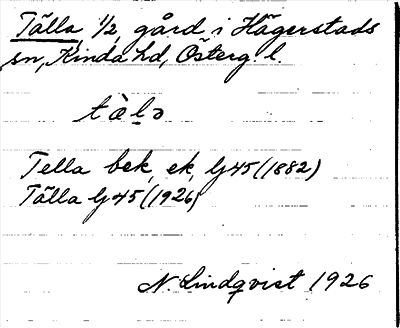 Tälla, 1/2, gård i Hägerstads
sn, Kinda hd, Österg. l.
tàlə
Tella bek, ek, Gj 45 (1882)
Tälla Gj 45 (1926)
N. Lindqvist 1926